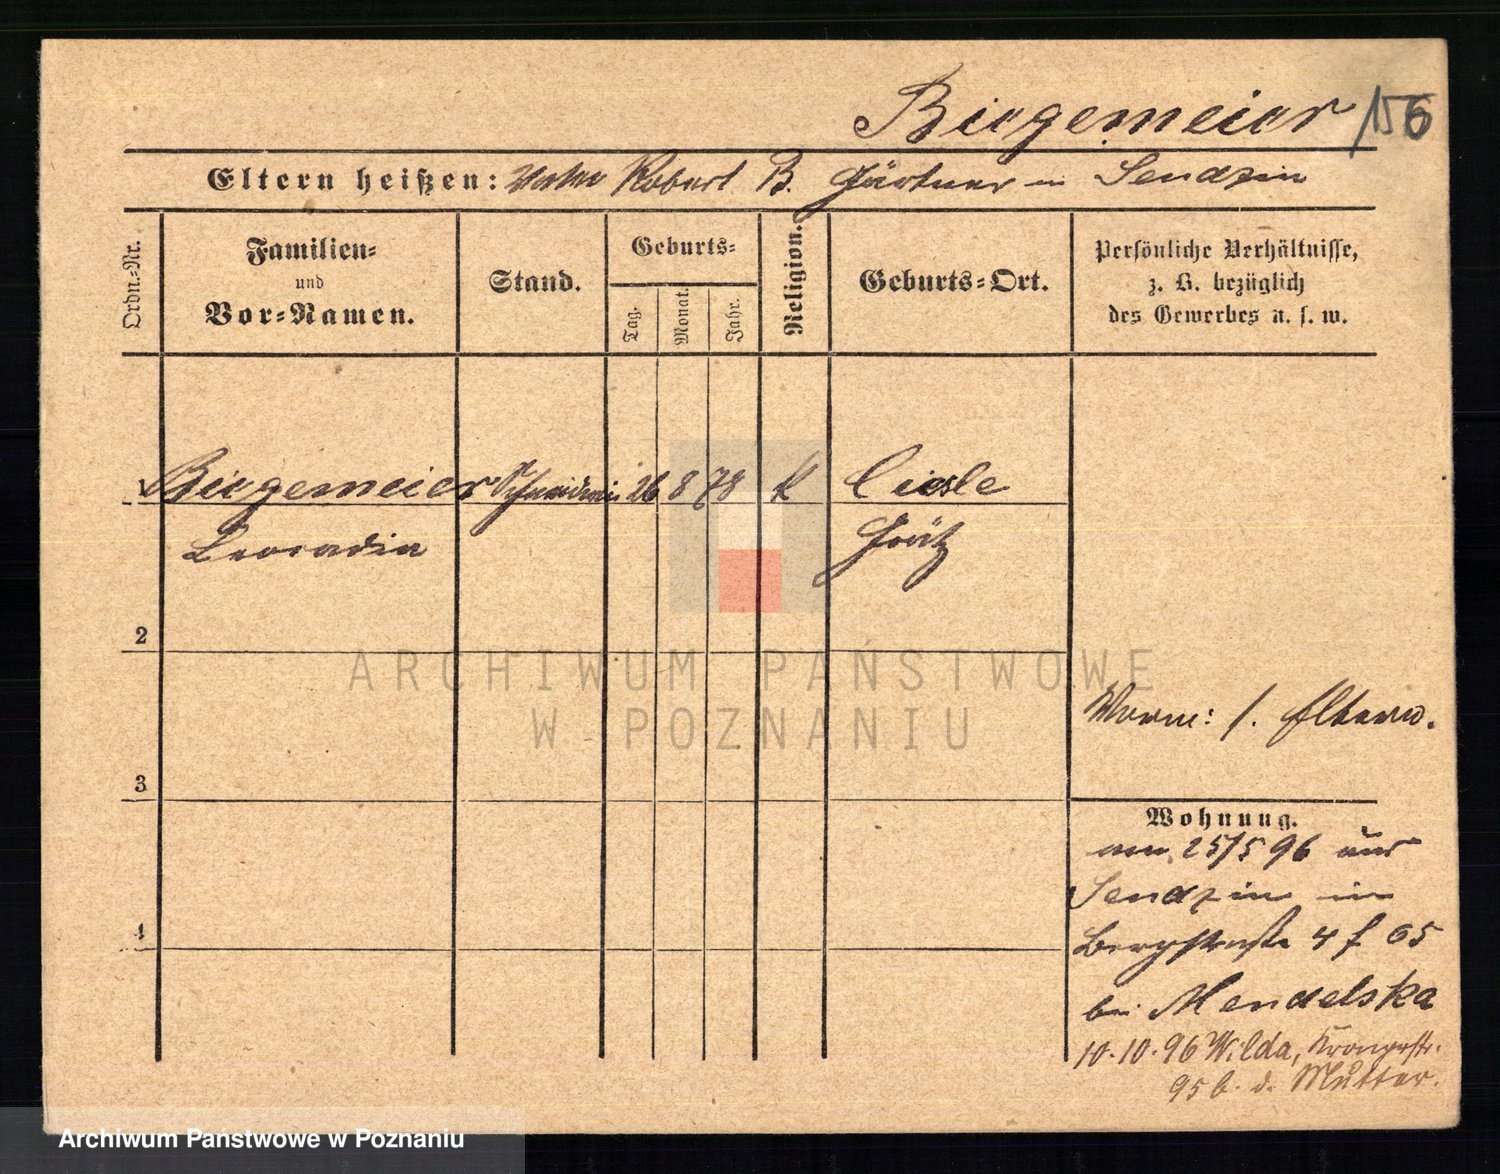 Biegemeier 156
Eltern heißen: Vater Robert B. Gärtner in Sendzin
Ordn.-Nr.
Familien-
und
Vor-Namen.
Stand.
Geburts-
Tag.
Monat.
Jahr.
Religion.
Geburts-Ort.
Persönliche Verhältnisse,
z. B. bezüglich
des Gewerbes u. s. w.
Biegemeier Schneiderin 26 8 78 k
Leocadia
Grätz
2
3
4
Vorm: s. Eltern.
Wohnung.
am 25/5 96 aus
Sendzin in
Bergstraße 4 f 65
bei Mendelska
10.10.96 Wilda, Kronprstr.
95 b. d. Mutter.
ARCHIWUM PAŃSTWOWE
W POZNANIU
Archiwum Państwowe w Poznaniu